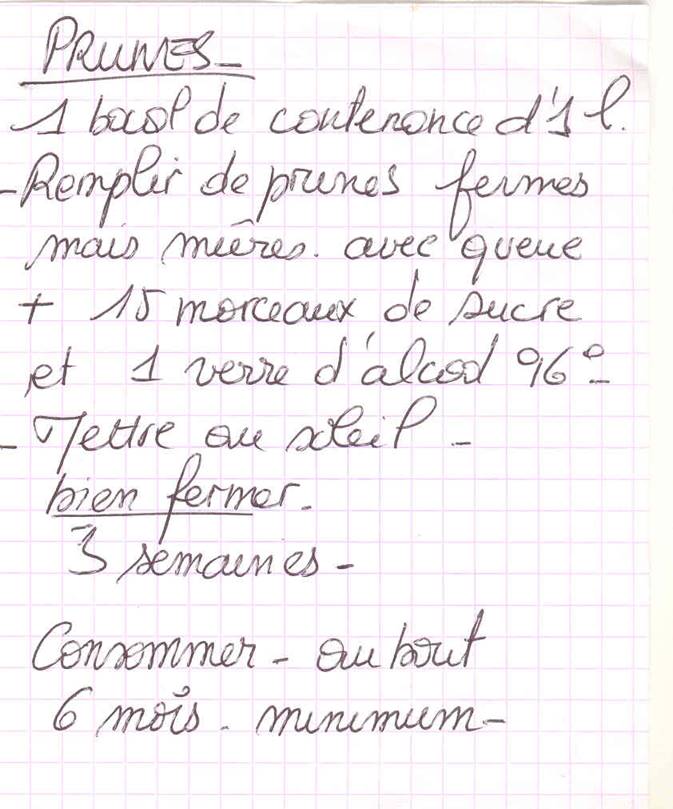 PRUNES -
1 bocal de contenance d'1 l.
- Remplir de prunes fermes
mais mûres. avec queue
+ 15 morceaux de sucre
et 1 verre d'alcool 96° -
- Mettre au soleil -
bien fermer.
3 semaines -
Consommer - au bout
6 mois - minimum -